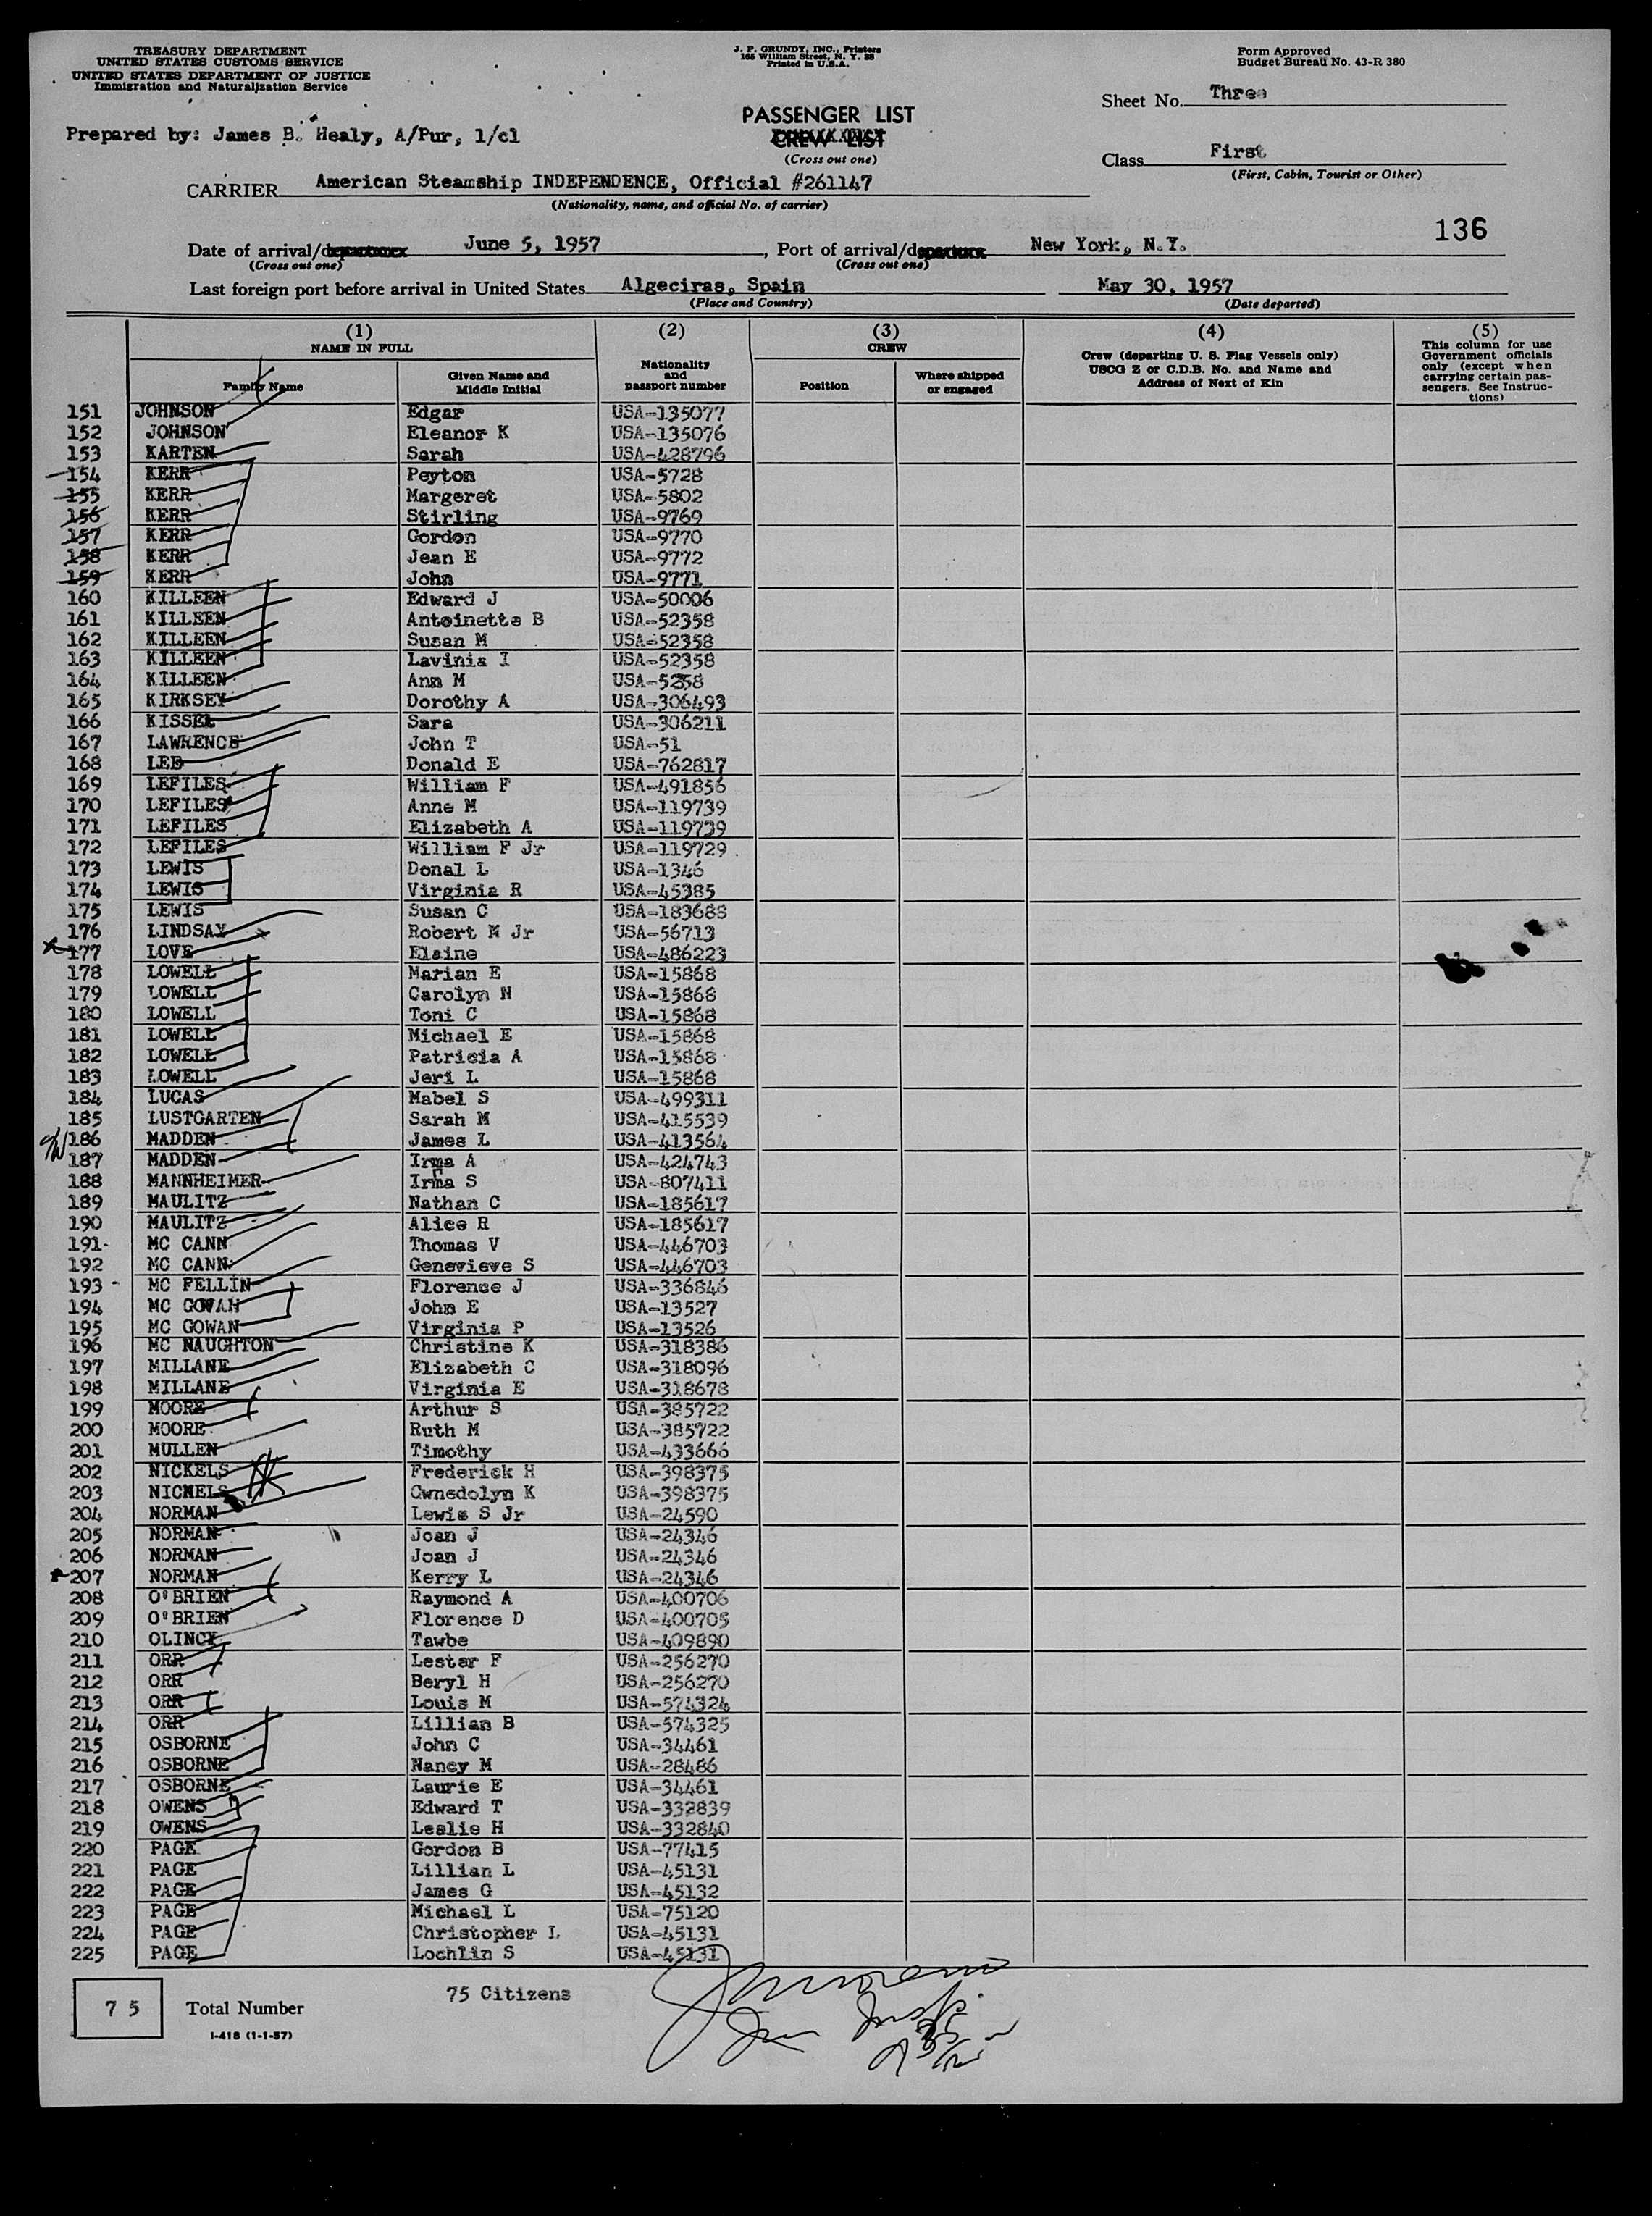 TREASURY DEPARTMENT
UNITED STATES CUSTOMS SERVICE
UNITED STATES DEPARTMENT OF JUSTICE
Immigration and Naturalization Service
J. P. GRUNDY, INC., Printers
165 William Street, N. Y. 38
Printed in U.S.A.
Form Approved
Budget Bureau No. 43-R 380
Sheet No. Three
PASSENGER LIST
CREW LIST
(Cross out one)
Prepared by: James B. Healy, A/Pur, 1/cl
Class First
(First, Cabin, Tourist or Other)
CARRIER American Steamship INDEPENDENCE, Official #261147
(Nationality, name, and official No. of carrier)
136
Date of arrival/departure June 5, 1957, Port of arrival/departure New York, N.Y.
(Cross out one) (Cross out one)
Last foreign port before arrival in United States Algeciras, Spain May 30, 1957
(Place and Country) (Date departed)
(1) (2) (3) (4) (5)
NAME IN FULL
Family Name
Given Name and Middle Initial
Nationality and passport number
CREW
Position
Where shipped or engaged
Crew (departing U. S. Flag Vessels only)
USCG Z or C.D.B. No. and Name and
Address of Next of Kin
This column for use
Government officials
only (except when
carrying certain pas-
sengers. See Instruc-
tions)
151 JOHNSON Edgar USA-135077
152 JOHNSON Eleanor K USA-135076
153 KARTEN Sarah USA-428796
154 KERR Peyton USA-5728
155 KERR Margeret USA-5802
156 KERR Stirling USA-9769
157 KERR Gordon USA-9770
158 KERR Jean E USA-9772
159 KERR John USA-9771
160 KILLEEN Edward J USA-50006
161 KILLEEN Antoinette B USA-52358
162 KILLEEN Susan M USA-52358
163 KILLEEN Lavinia I USA-52358
164 KILLEEN Ann M USA-5258
165 KIRKSEY Dorothy A USA-306493
166 KISSEL Sara USA-306211
167 LAWRENCE John T USA-51
168 LEE Donald E USA-762817
169 LEFILES William F USA-491856
170 LEFILES Anne M USA-119739
171 LEFILES Elizabeth A USA-119739
172 LEFILES William F Jr USA-119729
173 LEWIS Donal L USA-1346
174 LEWIS Virginia R USA-45385
175 LEWIS Susan C USA-183688
176 LINDSAY Robert N Jr USA-56713
177 LOVE Elaine USA-486223
178 LOWELL Marian E USA-15868
179 LOWELL Carolyn N USA-15868
180 LOWELL Toni C USA-15868
181 LOWELL Michael E USA-15868
182 LOWELL Patricia A USA-15868
183 LOWELL Jeri L USA-15868
184 LUCAS Mabel S USA-499311
185 LUSTGARTEN Sarah M USA-415539
186 MADDEN James L USA-413564
187 MADDEN Irma A USA-424743
188 MANNHEIMER Irma S USA-807411
189 MAULITZ Nathan C USA-185617
190 MAULITZ Alice R USA-185617
191 MC CANN Thomas V USA-446703
192 MC CANN Genevieve S USA-446703
193 MC FELLIN Florence J USA-336846
194 MC GOWAN John E USA-13527
195 MC GOWAN Virginia P USA-13526
196 MC NAUGHTON Christine K USA-318386
197 MILLANE Elizabeth C USA-318096
198 MILLANE Virginia E USA-318678
199 MOORE Arthur S USA-385722
200 MOORE Ruth M USA-385722
201 MULLEN Timothy USA-433666
202 NICKELS Frederick H USA-398375
203 NICKELS Gwnedolyn K USA-398375
204 NORMAN Lewis S Jr USA-24590
205 NORMAN Joan J USA-24346
206 NORMAN Joan J USA-24346
207 NORMAN Kerry L USA-24346
208 O'BRIEN Raymond A USA-400706
209 O'BRIEN Florence D USA-400705
210 OLINCY Tawbe USA-409890
211 ORR Lester F USA-256270
212 ORR Beryl H USA-256270
213 ORR Louis M USA-574324
214 ORR Lillian B USA-574325
215 OSBORNE John C USA-34461
216 OSBORNE Nancy M USA-28486
217 OSBORNE Laurie E USA-34461
218 OWENS Edward T USA-332839
219 OWENS Leslie H USA-332840
220 PAGE Gordon B USA-77415
221 PAGE Lillian L USA-45131
222 PAGE James G USA-45132
223 PAGE Michael L USA-75120
224 PAGE Christopher L USA-45131
225 PAGE Lochlin S USA-45131
75 Total Number
75 Citizens
I-418 (1-1-57)